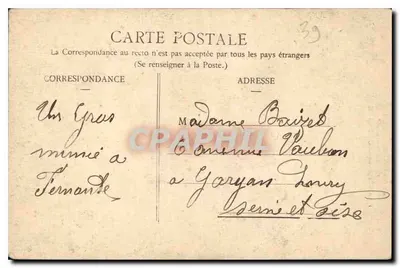 39
CARTE POSTALE
La Correspondance au recto n'est pas acceptée par tous les pays étrangers
(Se renseigner à la Poste.)
CORRESPONDANCE
ADRESSE
Un Gros
mimie a
Fernande
Madame Baizet
Avenue Vauban
a Gargan Livry
Seine et Oise
CPARAMA